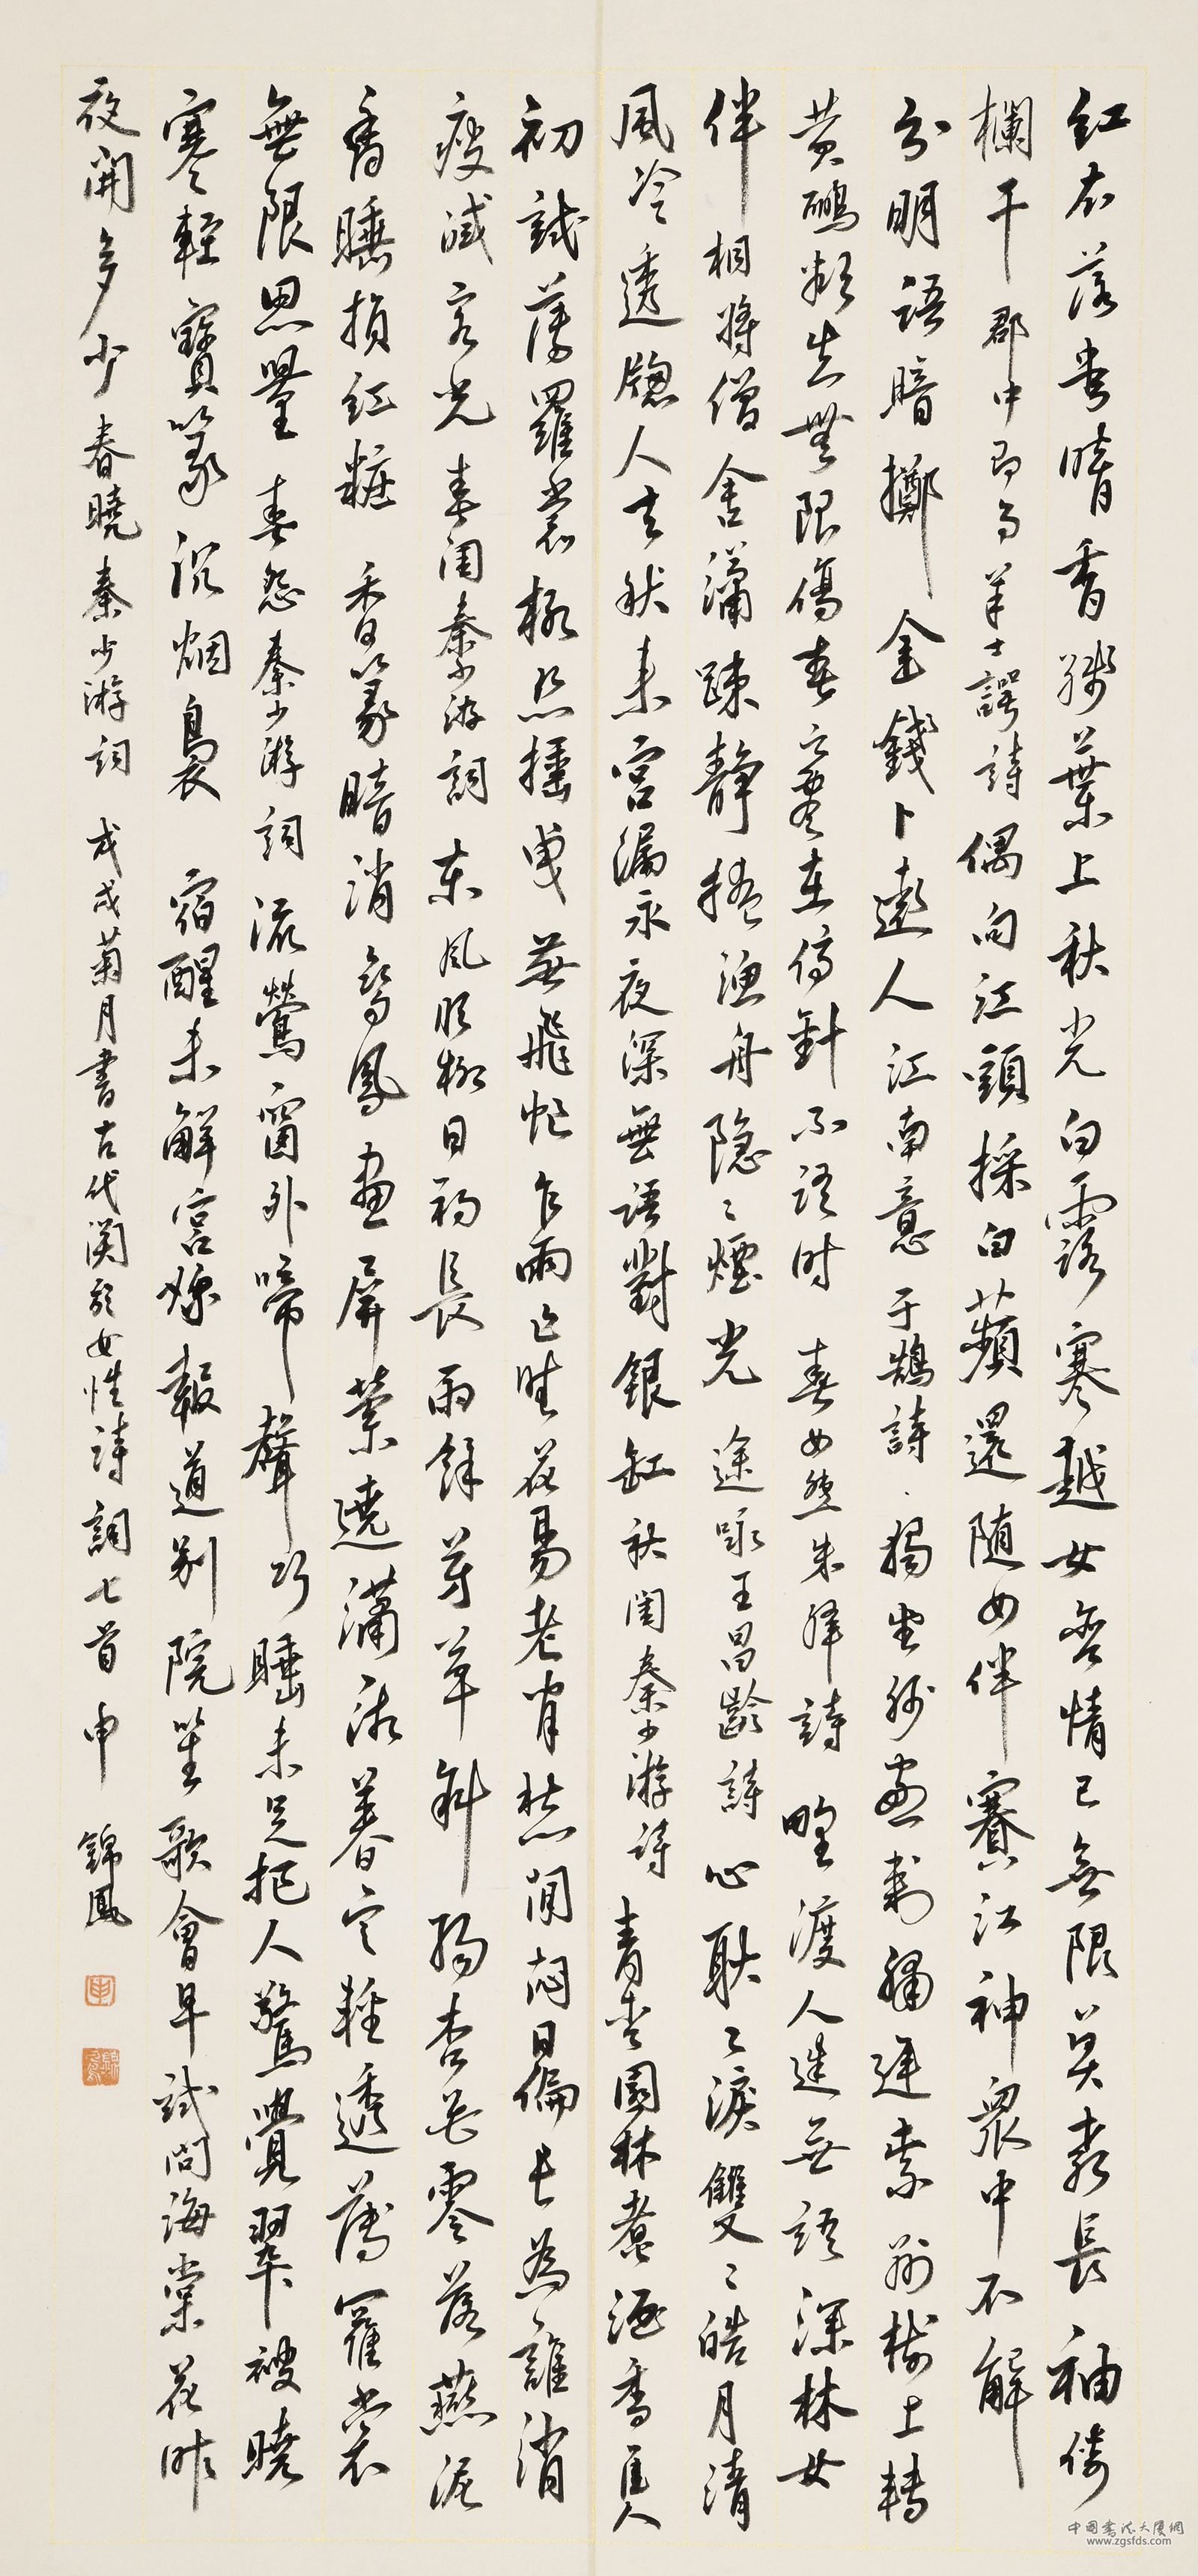 红衣落盡暗香残葉上秋光白露寒越女含情已無限莫教長袖倚
欄干 郡中即事羊士諤詩 偶向江頭採白蘋還随女伴賽江神衆中不解
分明語暗擲金錢卜遠人 江南意 于鵠詩 獨坐紗窗刺繡遲紫荆樹上轉
黄鸝欲知無限傷春意盡在停針不語時 春女怨朱絳詩 野渡人進無語深林女
伴相將僧舍瀟疎靜掩漁舟隐〻煙光 途詠王昌齡詩 心耿〻淚雙〻皓月清
風冷透牕人去秋来宮漏永夜深無語對銀缸 秋閨秦少游詩 青杏園林煮酒香佳人
初試薄羅裳柳絲摇曳燕飛忙乍雨乍晴花易老宵愁閒悶日偏長為誰消
瘦減容光 春閨秦少游詞 東風吹柳日初長雨餘芳草斜陽杏花零落燕泥
香睡損紅粧 香篆暗消鸞鳳畫屏縈遶瀟湘暮寒輕透薄羅裳
無限思量 春怨秦少游詞 流鶯窗外啼聲巧睡未足把人驚覺翠被曉
寒輕寶篆沉烟裊 宿酲未解宮娥報道别院笙歌會早試問海棠花昨
夜開多少 春曉秦少游詞 戊戌菊月書古代関於女性詩詞七首 申錦鳳
中國書法大厦網
www.zgsfds.com